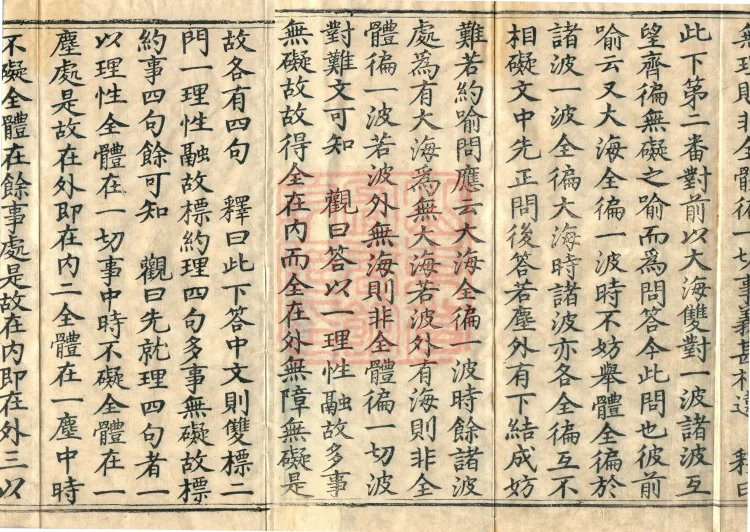 無理則非全體徧一切事義甚相違　釋曰
此下第二番對前以大海雙對一波諸波互
望齊徧無礙之喻而爲問答今此問也彼前
喻云又大海全徧一波時不妨舉體全徧於
諸波一波全徧大海時諸波亦各全徧互不
相礙文中先正問後答若塵外有下結成妨
難若約喻問應云大海全徧一波時餘諸波
處為有大海為無大海若波外有海則非全
體徧一波若波外無海則非全體徧一切波
對難文可知　觀曰答以一理性融故多事
無礙故故得全在內而全在外無障無礙是
故各有四句　釋曰此下答中文則雙標二
門一理性融故標約理四句多事無礙故標
約事四句餘可知　觀曰先就理四句者一
以理性全體在一切事中時不礙全體在一
塵處是故在外即在內二全體在一塵中時
不礙全體在餘事處是故在內即在外三以